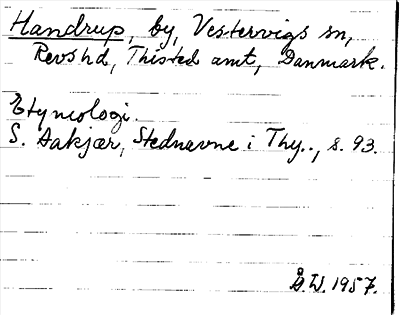 Handrup, by, Vestervigs sn,
Revshd, Thisted amt, Danmark.
Etymologi.
S. Aakjær, Stednavne i Thy.., s. 93.
Å.W. 1957.